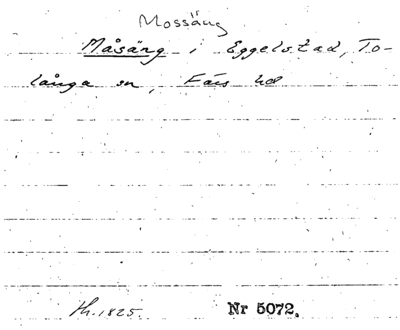 Mossäng
Måsäng i Eggelstad, To-
långa sn, Färs hd
th. 1825. Nr 5072.